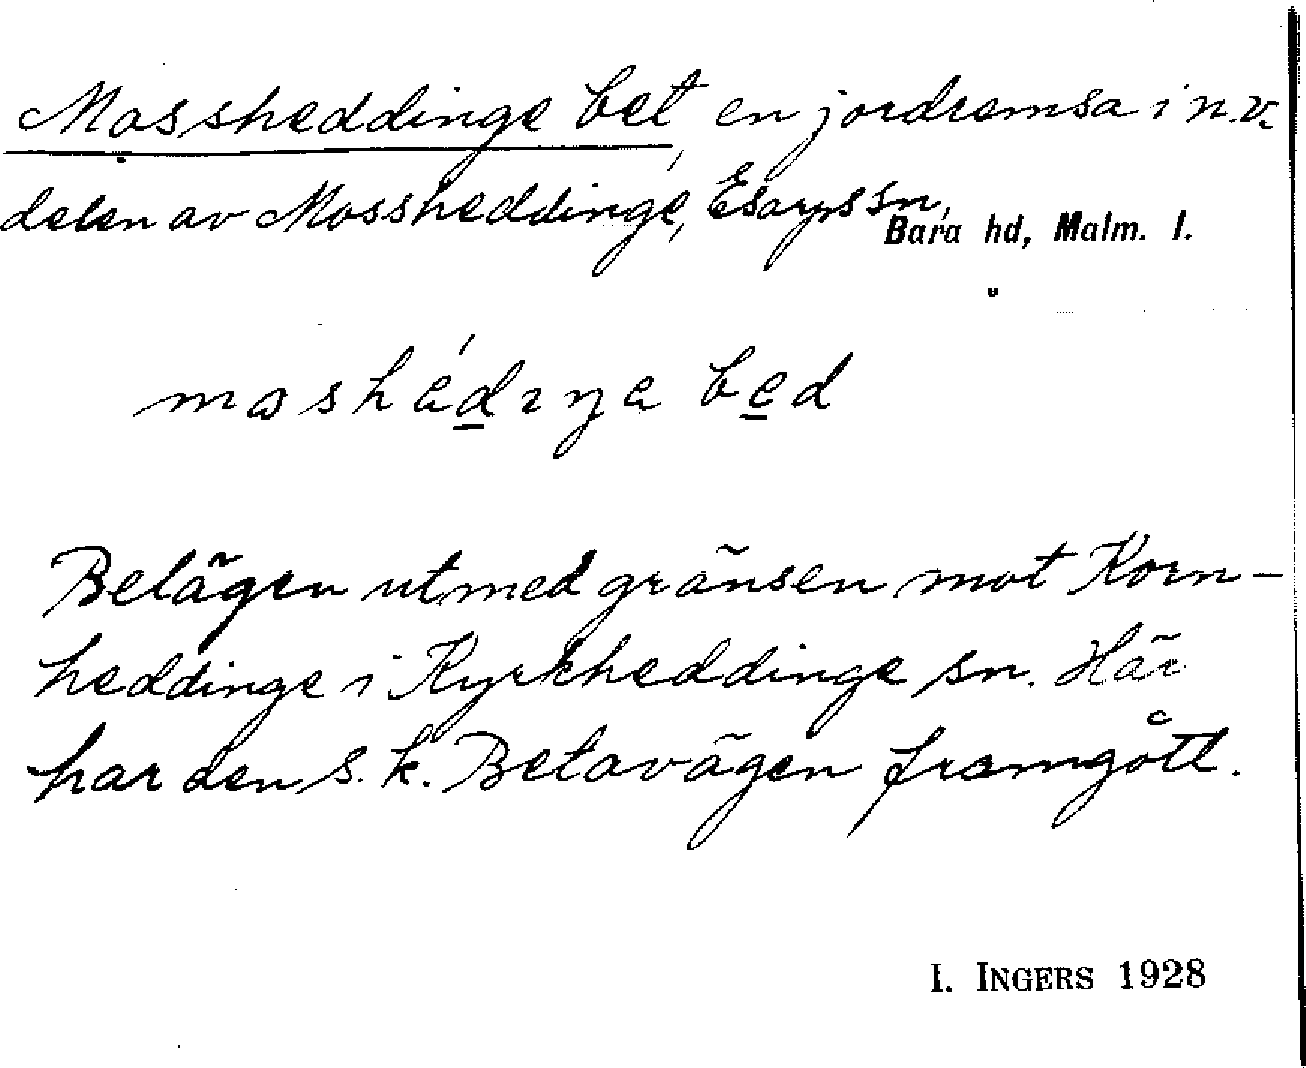 Mossheddinge bet en jordremsa i n.v.
delen av Mossheddinge, Esarps sn,
Bara hd, Malm. l.
mashédıŋa bed
Belägen utmed gränsen mot Korn-
heddinge i Kyrkheddinge sn. Här
har den s.k. Betavägen framgått.
I. INGERS 1928